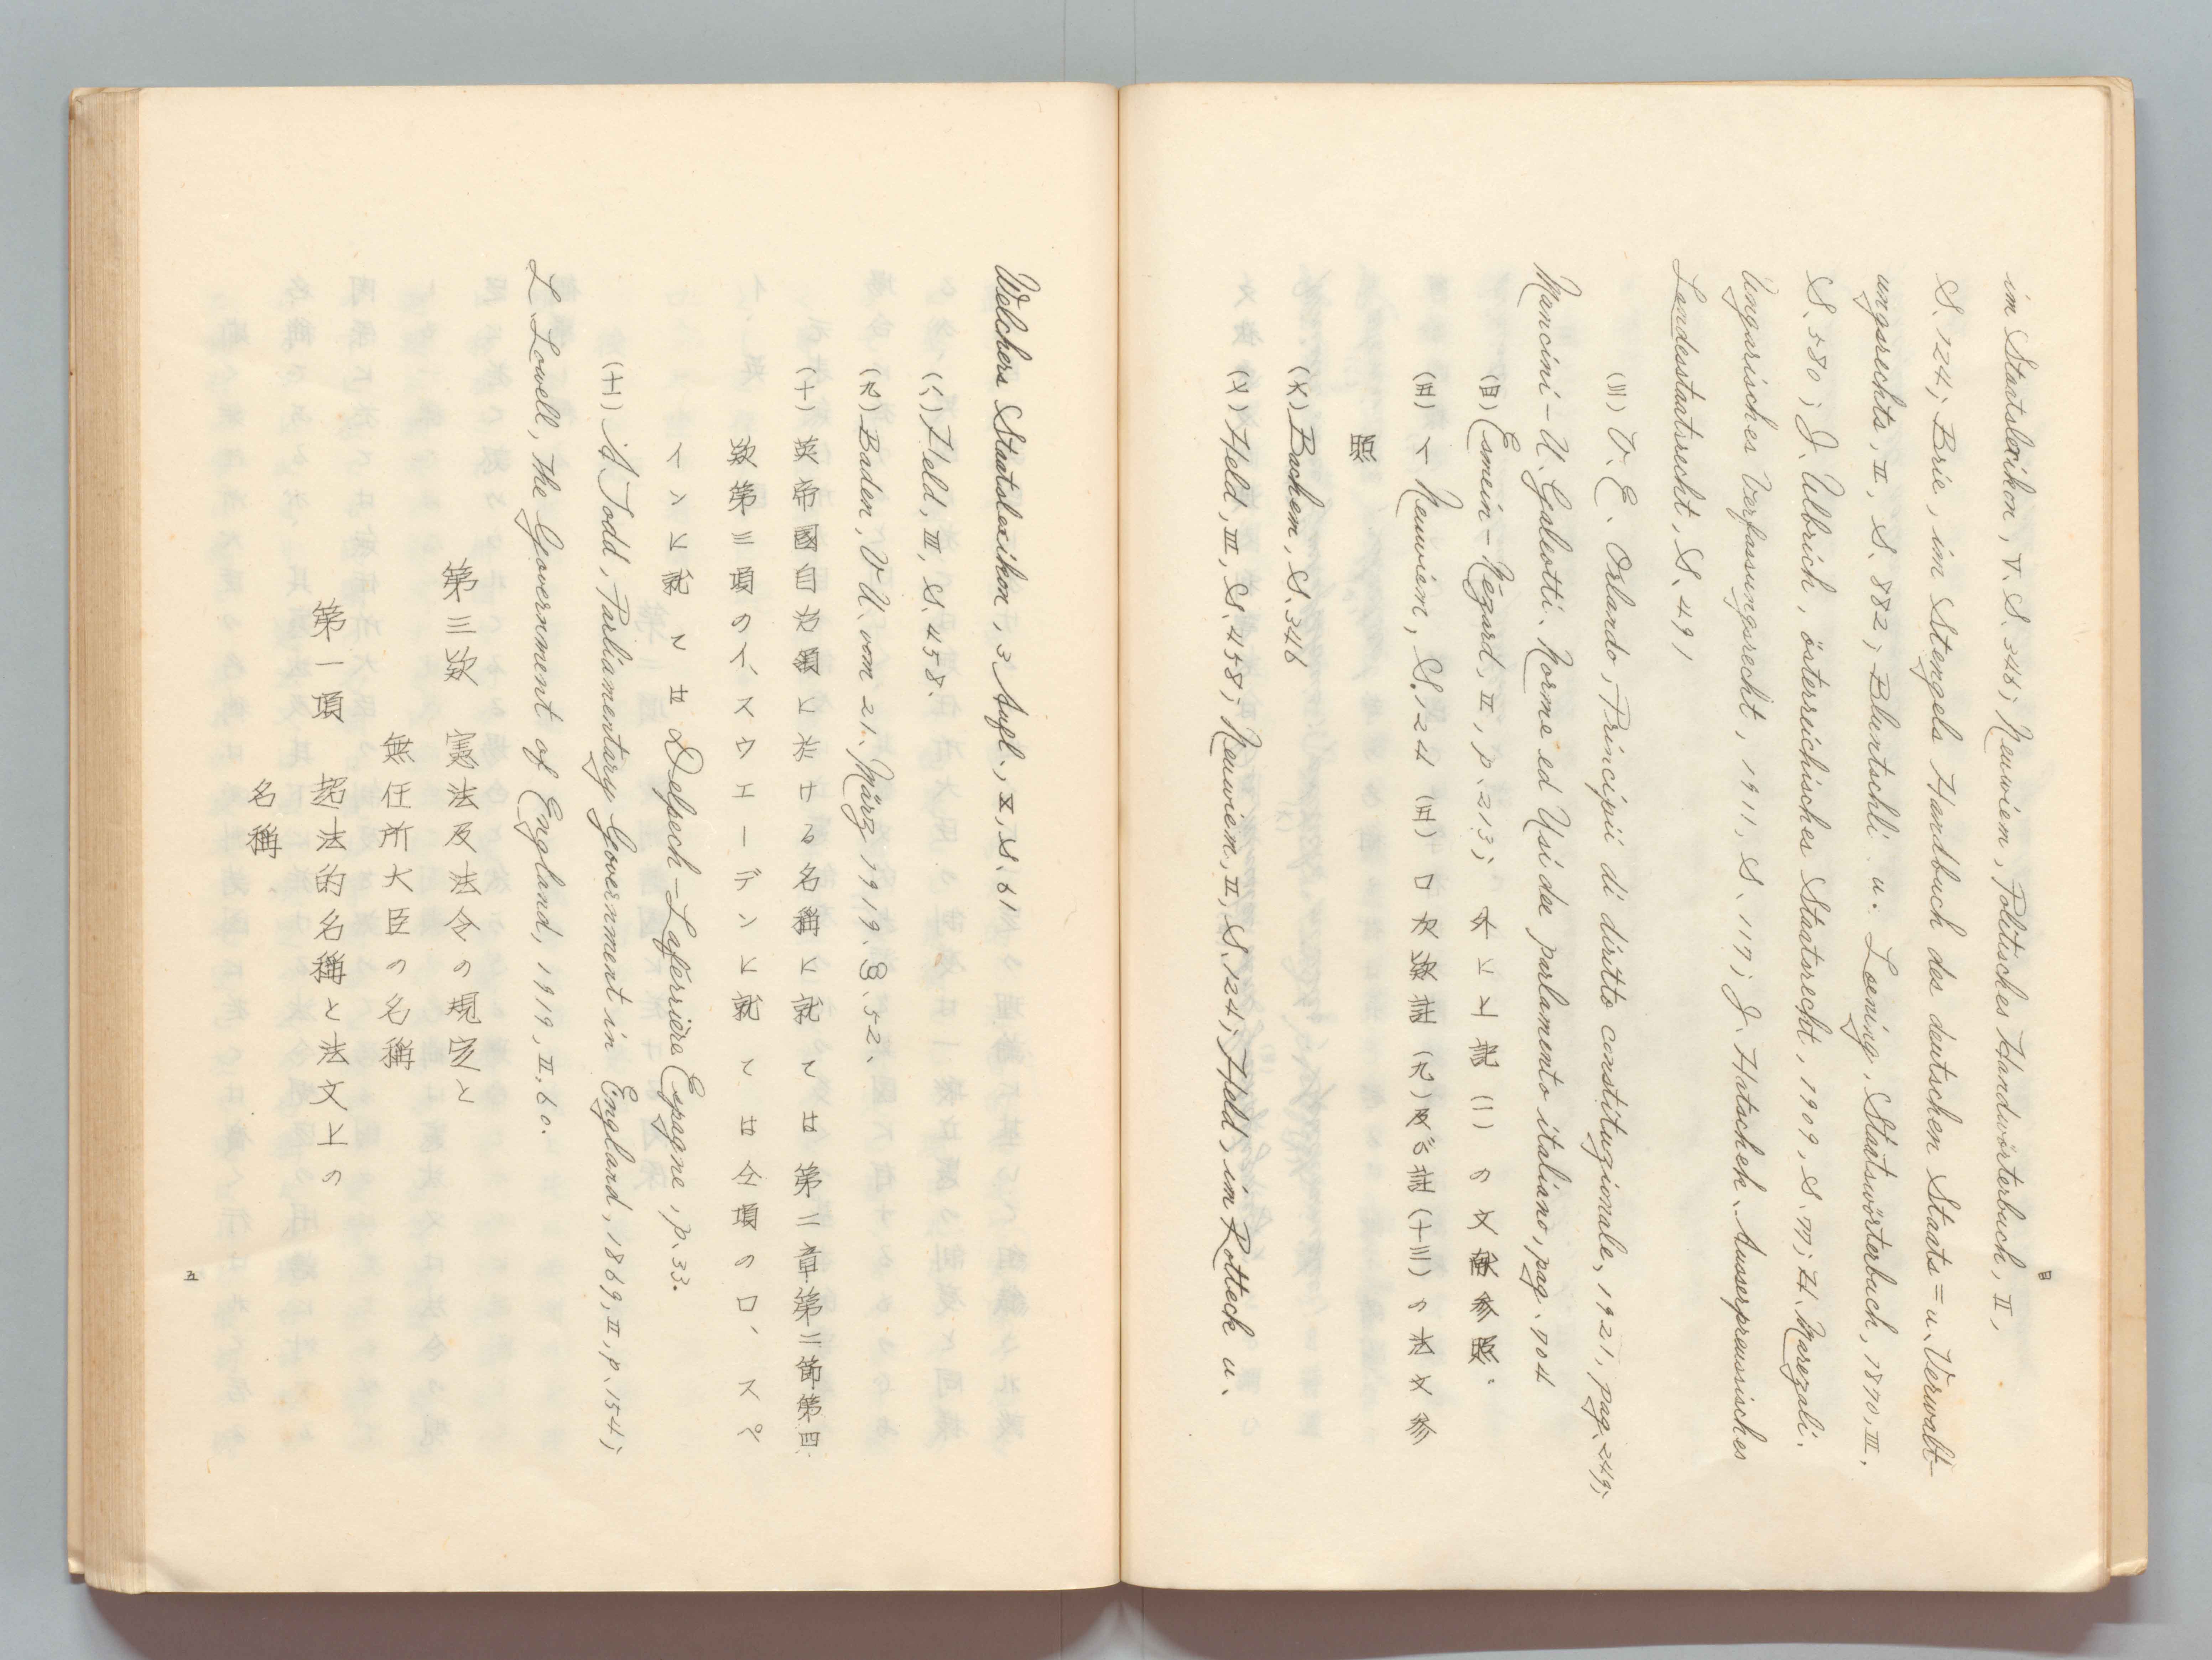 四
im Staatslexikon, V. S. 346; Neuwiem, Politisches Handwörterbuch, II,
S. 124; Brie, im Stengels Handbuch des deutschen Staats = u. Verwalt-
ungsrechts, II, S. 882; Bluntschli u. Loening, Staatswörterbuch, 1870, III.
S. 580; J. Ulbrich, österreichisches Staatsrecht, 1909, S. 77; H. Marczali.
Ungarisches Verfassungsrecht, 1911, S. 117; J. Hatschek, Ausserpreussisches
Landesstaatsrecht, S. 491
(三) V. E. Orlando, Principii di diritto constituzionale, 1921, pag. 249;
Mancini-U. Galeotti. Norme ed Usi del parlamento italiano, pag. 704
(四) Esmein-Négard, II, p. 213; 外に上記(二)の文献参照.
(五) イ Neuwiem, S. 124 (五) ロ次欵註(九)及び註(十三)の法文参
照
(六) Bachem, S. 346
(七) Held, III, S. 458; Neuwiem, II, S. 124; Held, im Rotteck u.
Welchers Staatslexikon, 3 Augl., X, S. 61
(八) Held, III, S. 458.
(九) Baden, V U. vom 21. März 1919. § 52.
(十) 英帝國自治領に於ける名稱に就ては第二章第二節第四
欵第三項のイ、スウエーデンに就ては仝項のロ、スペ
インに就ては Delpech-Laférrière Espagne, p. 33.
(十一) A Todd, Parliamentary Government in England, 1869, II, p. 154;
L Lowell, The Government of England, 1919, II, 60.
第三欵 憲法及法令の規定と
無任所大臣の名稱
第一項 超法的名稱と法文上の
名稱
五